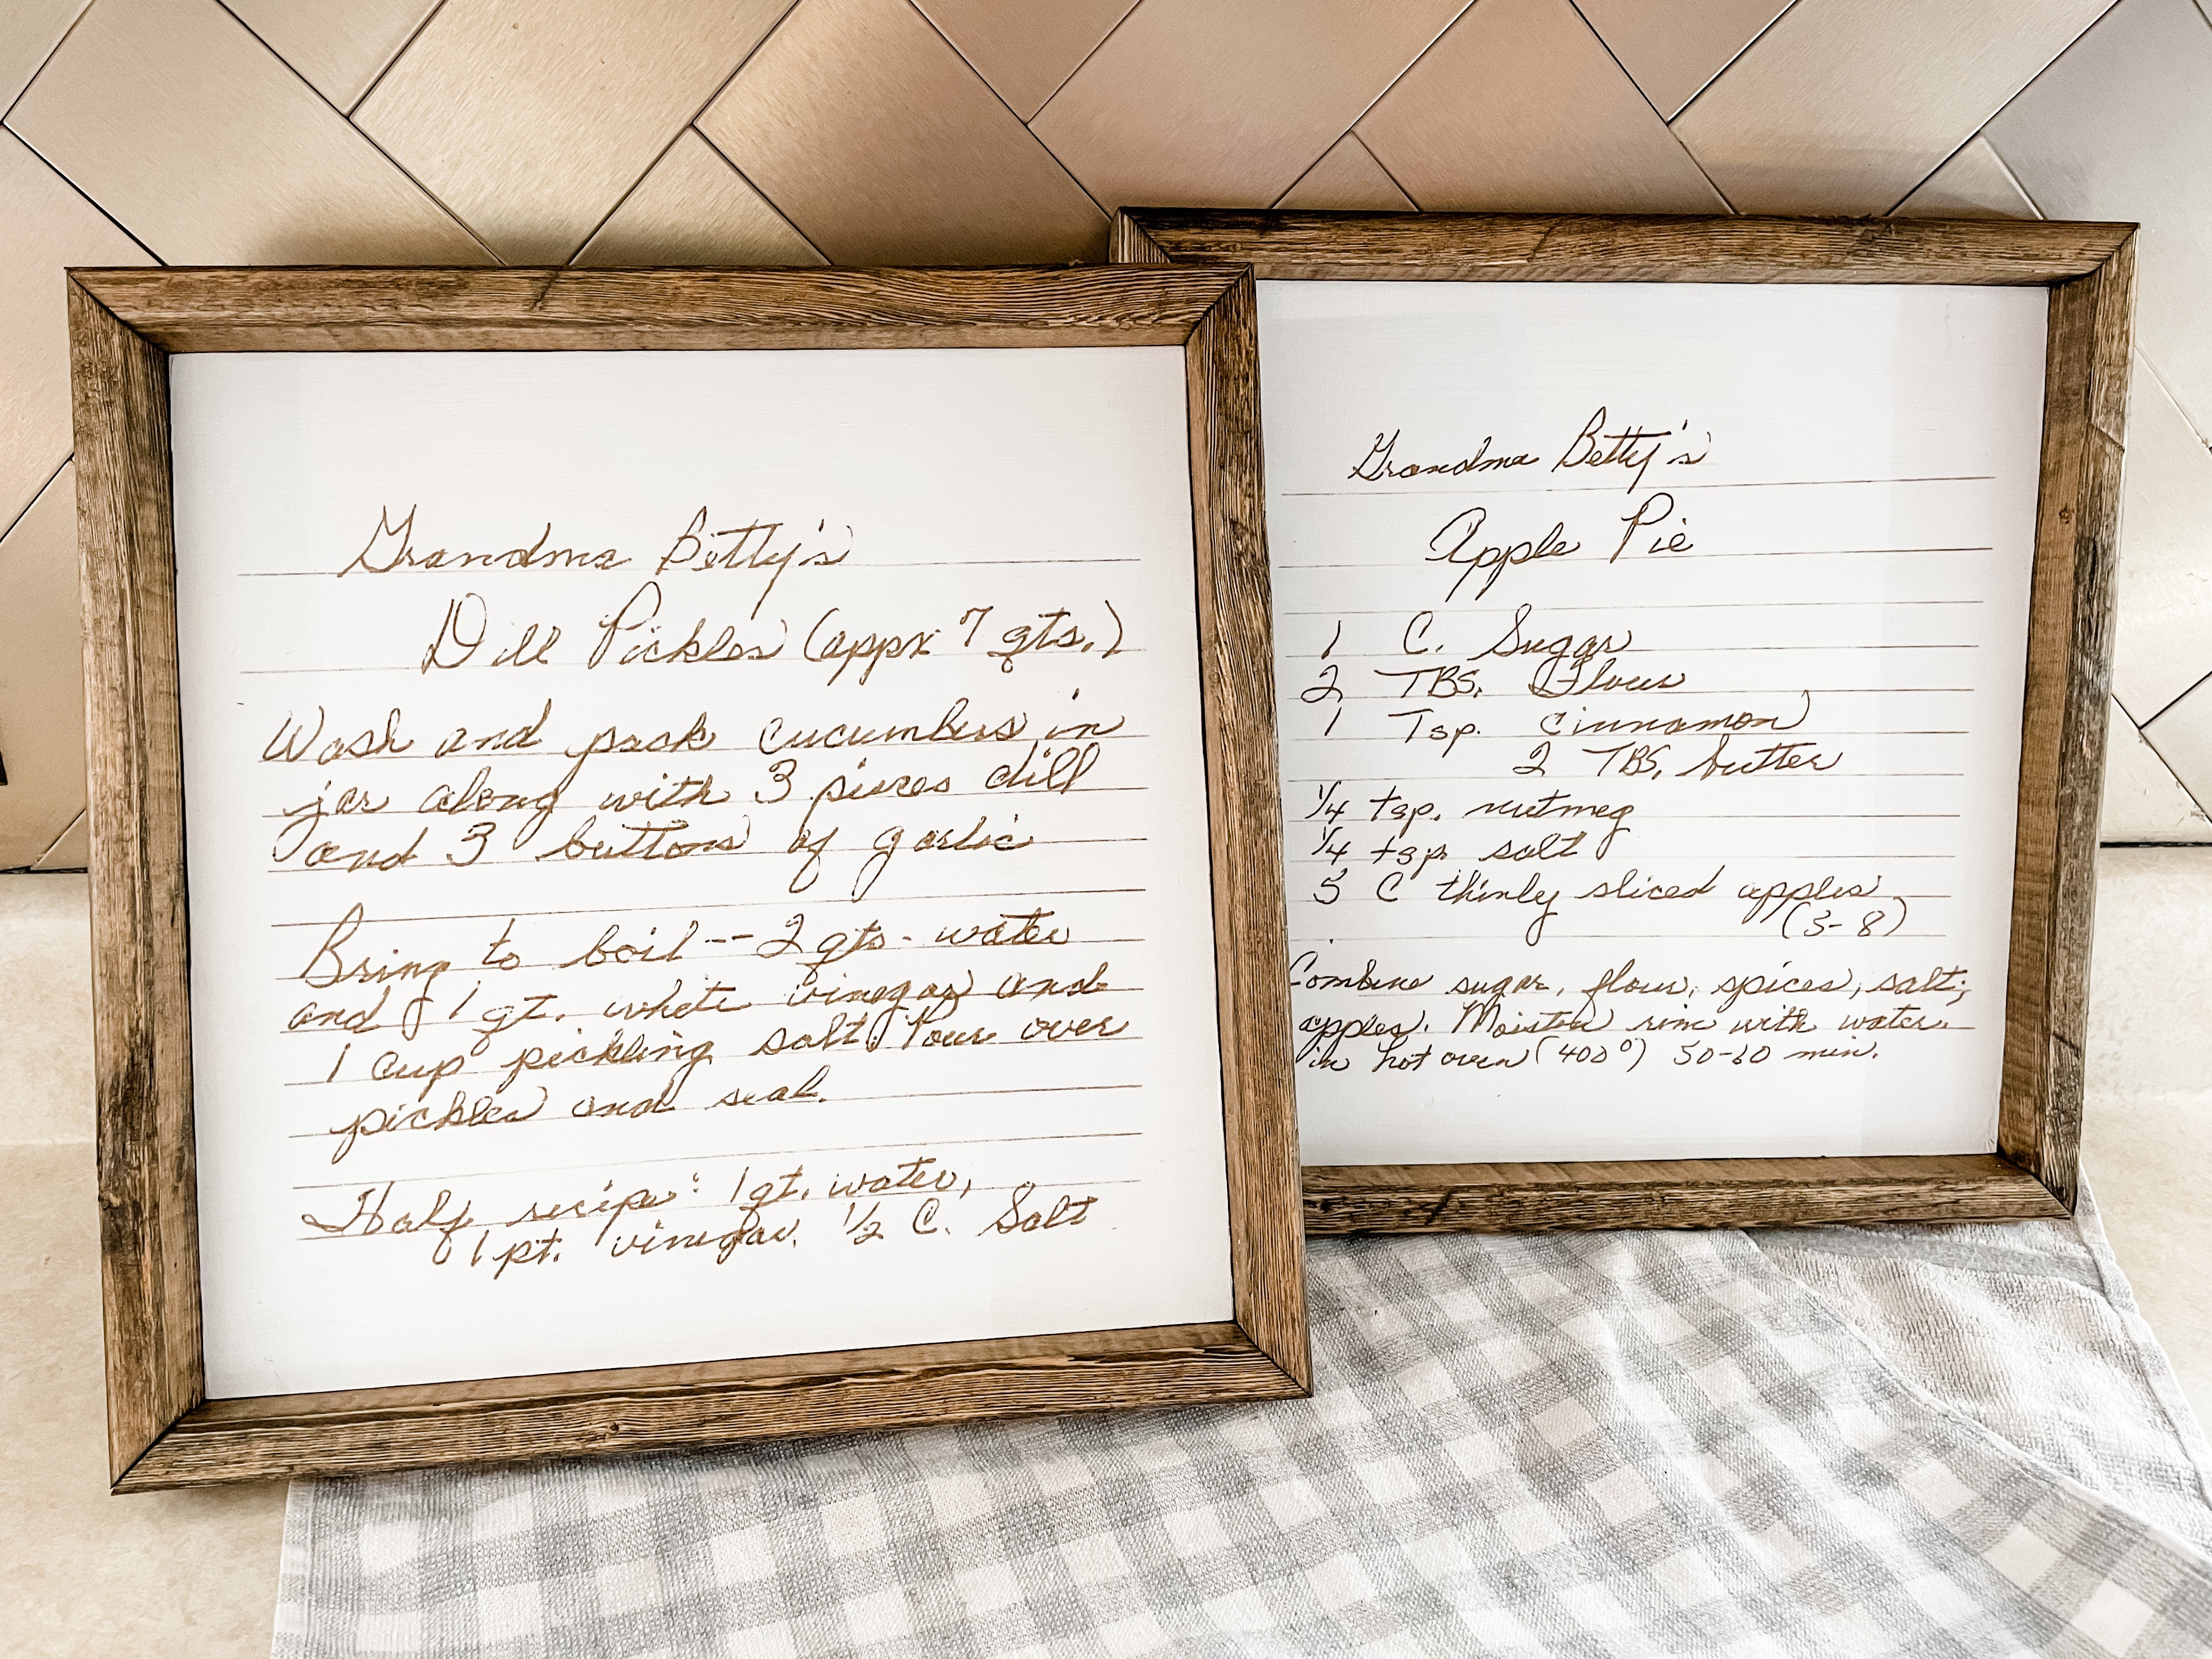 Grandma Betty's
Dill Pickles (appx 7 qts.)
Wash and pack cucumbers in
jar along with 3 pieces dill
and 3 buttons of garlic
Bring to boil -- 2 qts. water
and 1 qt. white vinegar and
1 cup pickling salt. Pour over
pickles and seal.
Half recipe: 1 qt. water,
1 pt. vinegar, 1/2 C. Salt
Grandma Betty's
Apple Pie
1 C. Sugar
2 TBS. Flour
1 Tsp. Cinnamon
2 TBS. butter
1/4 tsp. nutmeg
1/4 tsp salt
5 C thinly sliced apples
Combine sugar, flour, spices, salt,
apples. Moisten rim with water.
in hot oven (400°) 50-60 min.